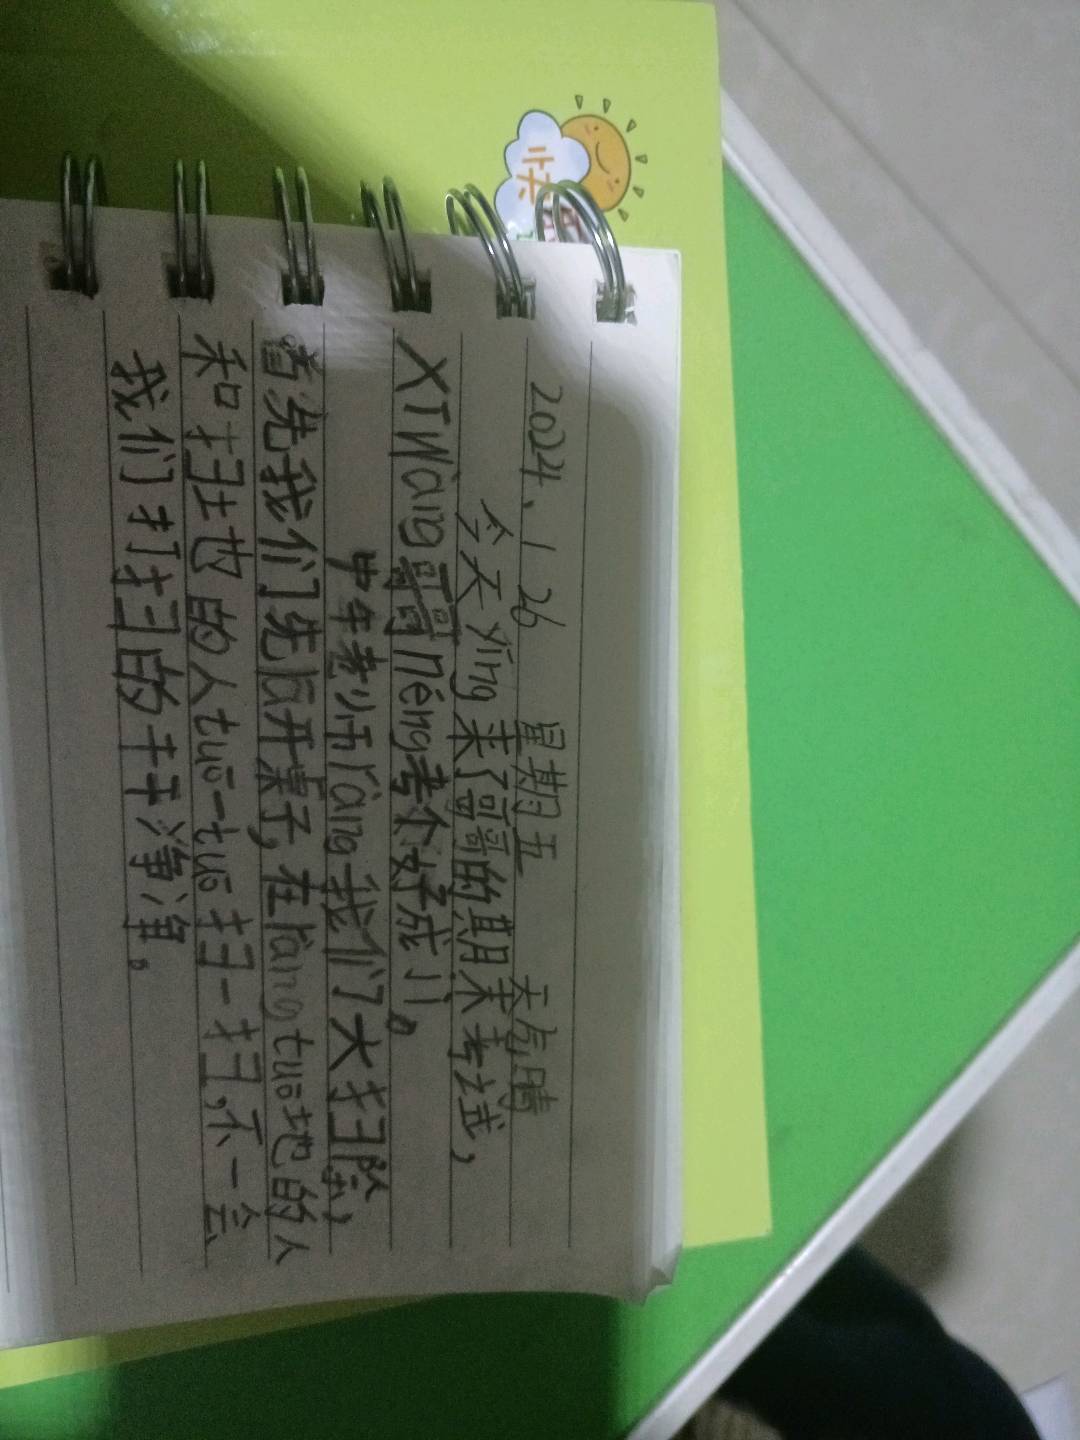 快
2024、1 26 星期五 天气晴
今天 yíng 来了哥哥的期末考试,
XīWàng 哥哥 néng 考个好成儿。
中午老师 ràng 我们大扫除,
首先我们先后开桌子,在 ràng tuō 地的人
和扫地的人 tuō 一 tuō 扫一扫,不一会
我们打扫的干干净净。